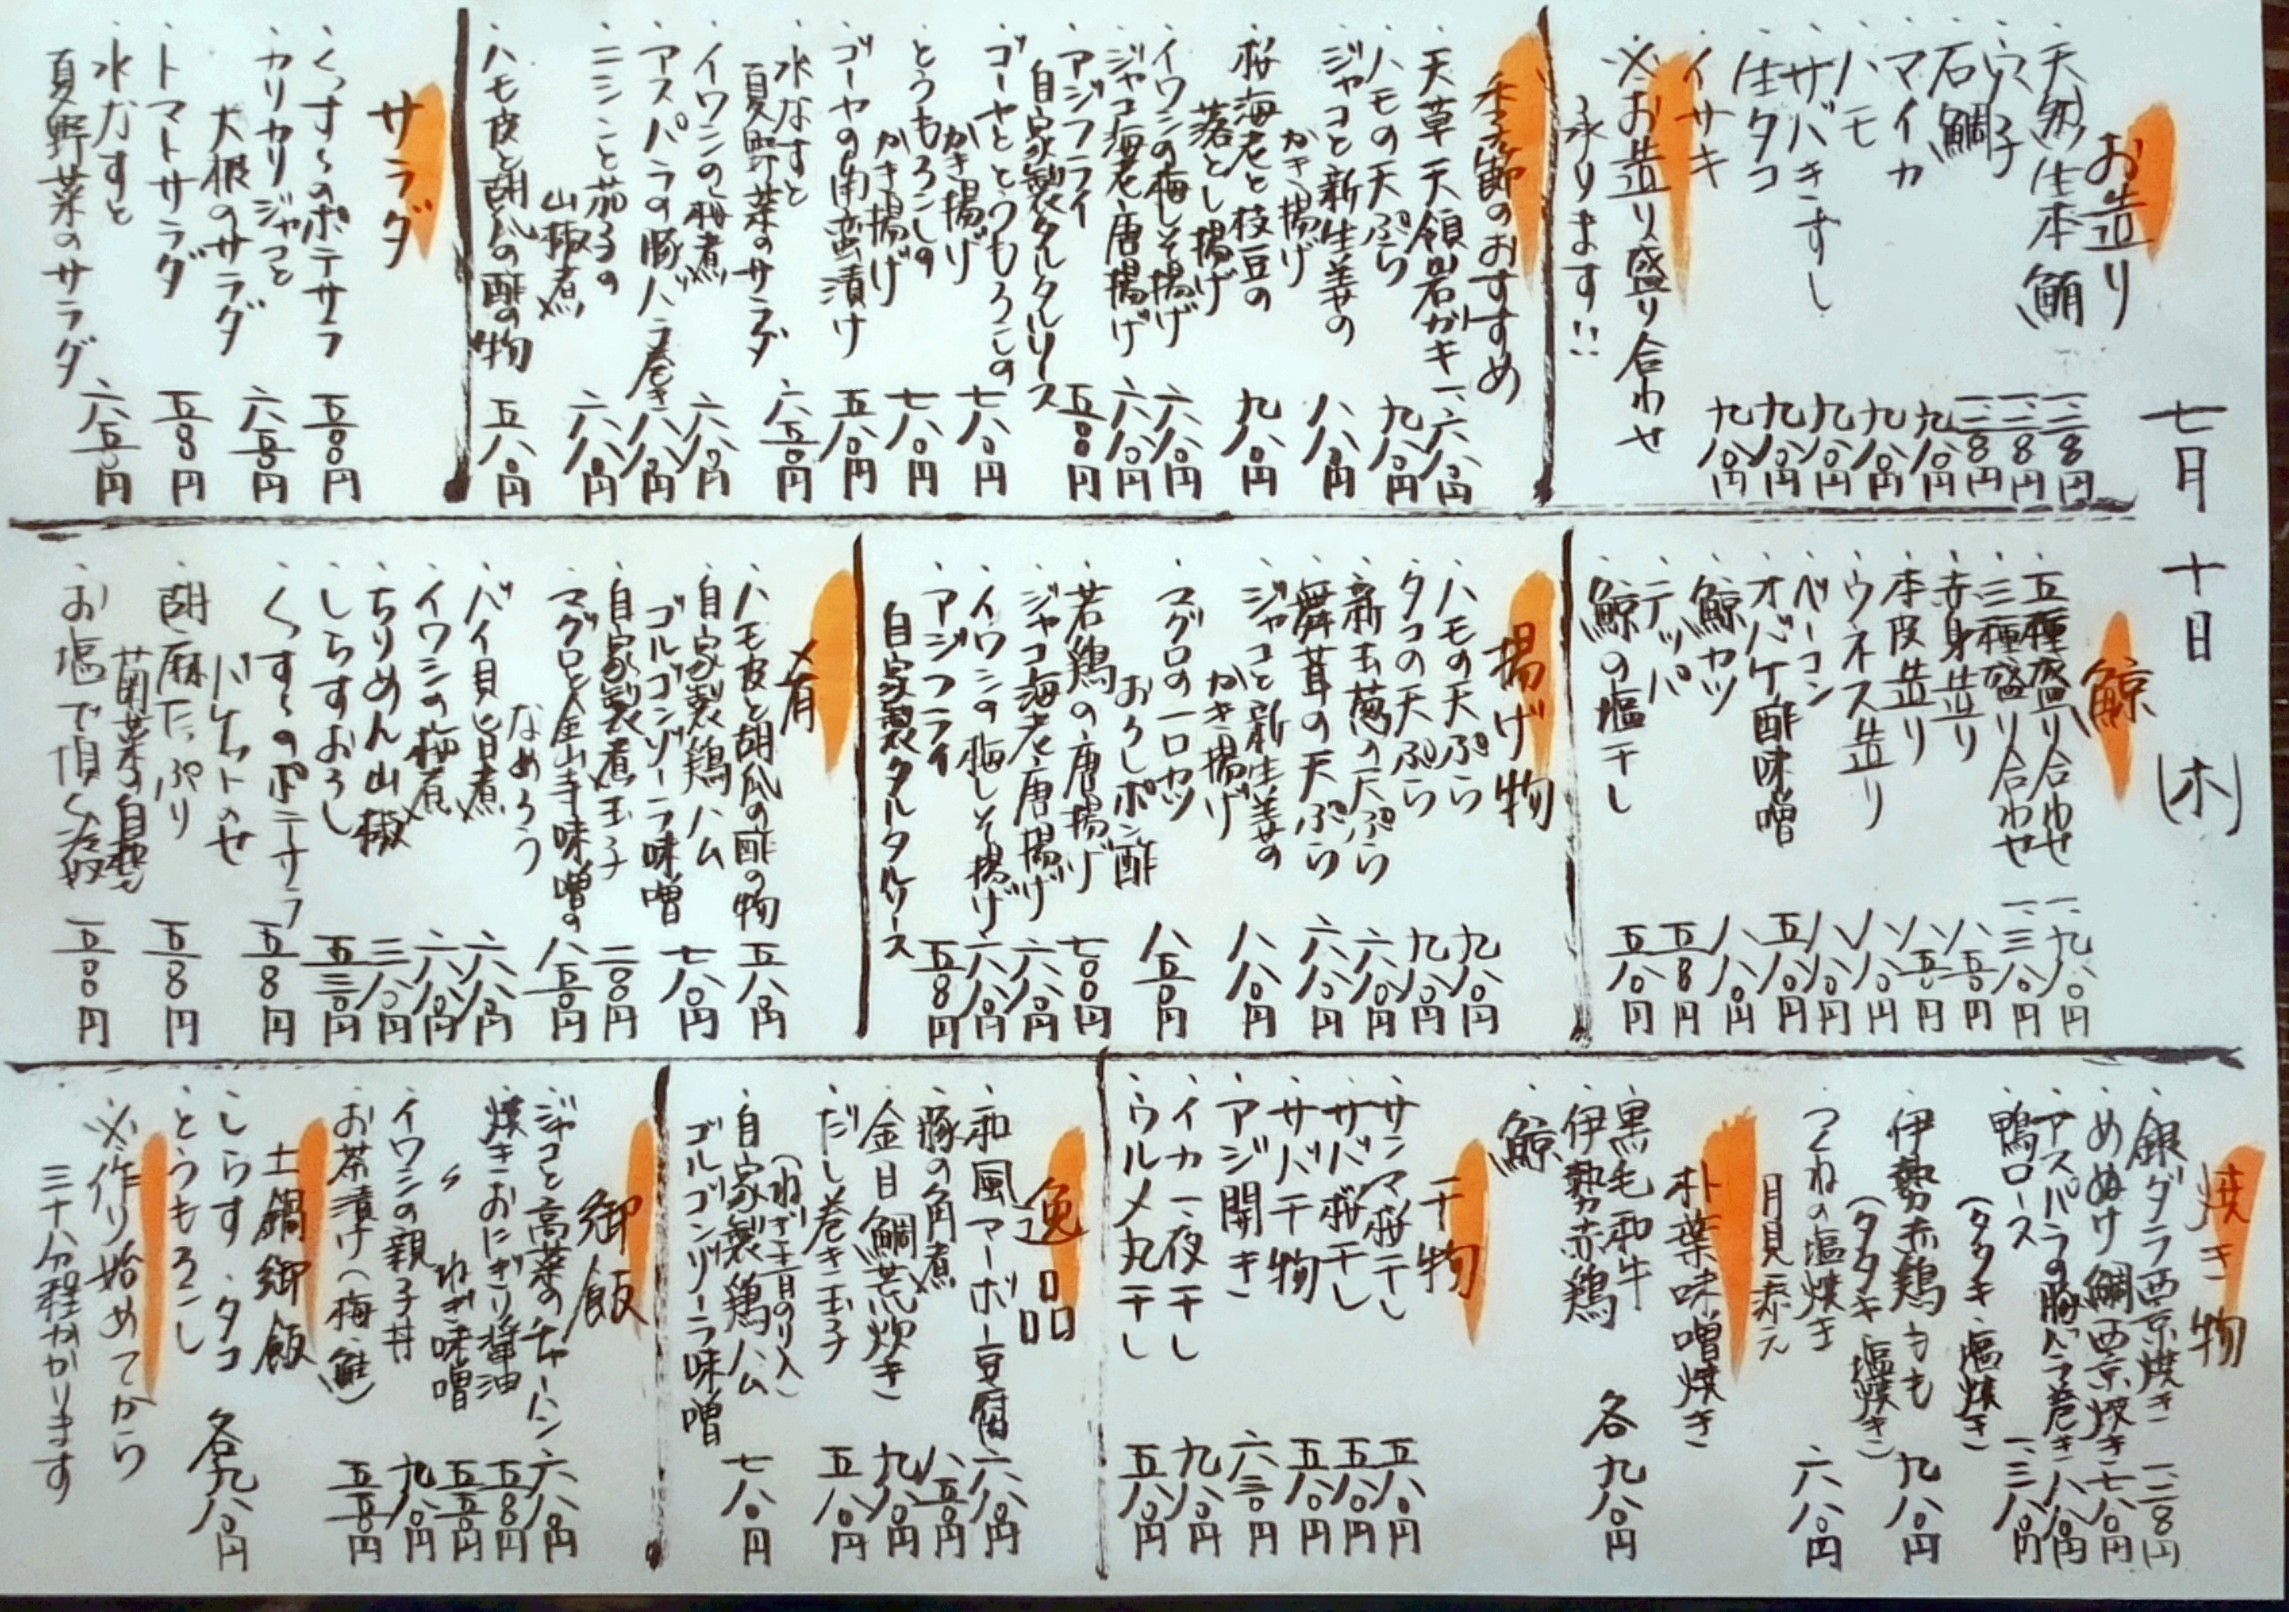 七月十日(木)
お造り
・天然生本鮪 一、二八〇円
・穴子
・石鯛
・マイカ
・ハモ 九八〇円
・サバきずし 九八〇円
・生タコ 九八〇円
・イサキ 九八〇円
※お造り盛り合わせ
承ります!!
季節のおすすめ
・天草天領岩ガキ 一、六八〇円
・ハモの天ぷら 九八〇円
・ジャコと新生姜の
かき揚げ 八八〇円
・桜海老と枝豆の
落とし揚げ 九八〇円
・イワシの梅しそ揚げ 六八〇円
・ジャコ海老唐揚げ 六八〇円
・アジフライ
自家製タルタルソース 五五〇円
・ゴーヤととうもろこしの
かき揚げ 七八〇円
・とうもろこしの
かき揚げ 七八〇円
・ゴーヤの南蛮漬け 五八〇円
・水なすと
夏野菜のサラダ 六五〇円
・イワシの梅煮 六八〇円
・アスパラの豚バラ巻き 八八〇円
・ニシンと茄子の
山椒煮 六八〇円
・ハモ皮と胡瓜の酢の物 五八〇円
サラダ
・くっすんのポテサラ 五〇〇円
・カリカリジャコと
大根のサラダ 六五〇円
・トマトサラダ 五五〇円
・水なすと
夏野菜のサラダ 六五〇円
鯨
・五種盛り合わせ 一、九八〇円
・三種盛り合わせ 一、三八〇円
・赤身造り 八五〇円
・本皮造り 八五〇円
・ウネス造り 八八〇円
・ベーコン 八八〇円
・オバケ酢味噌 五八〇円
・鯨カツ 八八〇円
・テッパ 五五〇円
・鯨の塩干し 五八〇円
揚げ物
・ハモの天ぷら 九八〇円
・タコの天ぷら 九八〇円
・新玉葱の天ぷら 六八〇円
・舞茸の天ぷら 六八〇円
・ジャコと新生姜の
かき揚げ 八八〇円
・マグロの一口カツ
おろしポン酢 八五〇円
・若鶏の唐揚げ 七〇〇円
・ジャコ海老唐揚げ 六八〇円
・イワシの梅しそ揚げ 六八〇円
・アジフライ
自家製タルタルソース 五五〇円
肴
・ハモ皮と胡瓜の酢の物 五八〇円
・自家製鶏ハム
ゴルゴンゾーラ味噌 七八〇円
・自家製煮玉子 二〇〇円
・マグロと金山寺味噌の
なめろう 八五〇円
・バイ貝旨煮 六八〇円
・イワシの梅煮 六八〇円
・ちりめん山椒 三八〇円
・しらすおろし 五三〇円
・くっすんのポテサラ
バケットのせ 五五〇円
・胡麻たっぷり
菊菜の白和え 五五〇円
・お塩で頂く冷奴 五〇〇円
焼き物
・銀ダラ西京焼き 一、二八〇円
・めぬけ鯛西京焼き 七八〇円
・アスパラの豚バラ巻き 八八〇円
・鴨ロース
(タタキ・塩焼き) 一、三八〇円
・伊勢赤鶏もも
(タタキ・塩焼き) 九八〇円
・つくねの塩焼き
月見添え 六八〇円
朴葉味噌焼き
・黒毛和牛
・伊勢赤鶏
・鯨 各九八〇円
干物
・サンマ桜干し 五八〇円
・サバ桜干し 五八〇円
・サバ干物 五八〇円
・アジ開き 六三〇円
・イカ一夜干し 九八〇円
・ウルメ丸干し 五八〇円
逸品
・和風マーボー豆腐 六八〇円
・豚の角煮 八五〇円
・金目鯛荒炊き 九八〇円
・だし巻き玉子
(ねぎ・青のり入) 五八〇円
・自家製鶏ハム
ゴルゴンゾーラ味噌 七八〇円
御飯
・ジャコと高菜のチャーハン 六八〇円
・焼きおにぎり醤油 五五〇円
・〃 ねぎ味噌 五五〇円
・イワシの親子丼 九八〇円
・お茶漬け(梅・鮭) 五五〇円
土鍋御飯
・しらす・タコ
・とうもろこし 各九八〇円
※作り始めてから
三十分程かかります